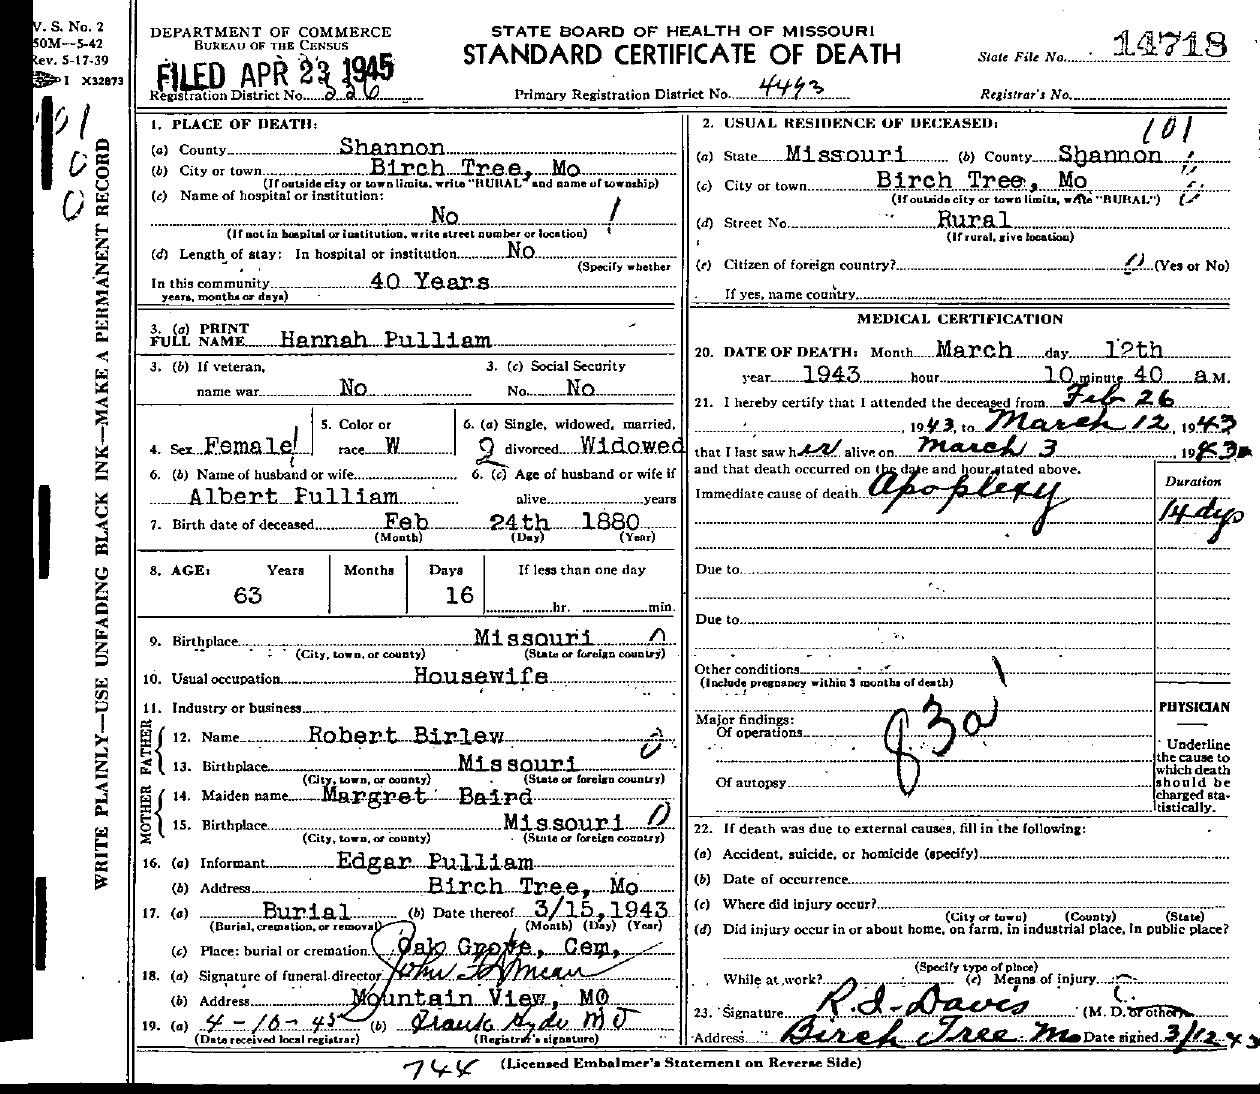 V. S. No. 2
50M—5-42
Rev. 5-17-39
I X32873
WRITE PLAINLY—USE UNFADING BLACK INK—MAKE A PERMANENT RECORD
DEPARTMENT OF COMMERCE
BUREAU OF THE CENSUS
FILED APR 23 1945
Registration District No. 336
STATE BOARD OF HEALTH OF MISSOURI
STANDARD CERTIFICATE OF DEATH
Primary Registration District No. 4493
State File No. 14718
Registrar's No.
1. PLACE OF DEATH:
(a) County Shannon
(b) City or town Birch Tree, Mo
(If outside city or town limits, write "RURAL" and name of township)
(c) Name of hospital or institution:
No
(If not in hospital or institution, write street number or location)
(d) Length of stay: In hospital or institution No
(Specify whether
In this community 40 Years
years, months or days)
3. (a) PRINT FULL NAME Hannah Pulliam
3. (b) If veteran, name war No
3. (c) Social Security No. No
4. Sex Female
5. Color or race W
6. (a) Single, widowed, married, divorced Widowed
6. (b) Name of husband or wife
Albert Pulliam
6. (c) Age of husband or wife if alive years
7. Birth date of deceased Feb 24th 1880
(Month) (Day) (Year)
8. AGE: Years Months Days If less than one day
63 16 hr. min.
9. Birthplace Missouri
(City, town, or county) (State or foreign country)
10. Usual occupation Housewife
11. Industry or business
FATHER
12. Name Robert Birlew
13. Birthplace Missouri
(City, town, or county) (State or foreign country)
MOTHER
14. Maiden name Margret Baird
15. Birthplace Missouri
(City, town, or county) (State or foreign country)
16. (a) Informant Edgar Pulliam
(b) Address Birch Tree, Mo
17. (a) Burial (b) Date thereof 3/15,1943
(Burial, cremation, or removal) (Month) (Day) (Year)
(c) Place: burial or cremation Oak Grove, Cem,
18. (a) Signature of funeral director John
(b) Address Mountain View, MO
19. (a) 4-10-45 (b) Frank Hyde MD
(Date received local registrar) (Registrar's signature)
2. USUAL RESIDENCE OF DECEASED:
101
(a) State Missouri (b) County Shannon
(c) City or town Birch Tree, Mo
(If outside city or town limits, write "RURAL")
(d) Street No. Rural
(If rural, give location)
(e) Citizen of foreign country? (Yes or No)
If yes, name country
MEDICAL CERTIFICATION
20. DATE OF DEATH: Month March day 12th
year 1943 hour 10 minute 40 a M.
21. I hereby certify that I attended the deceased from Feb 26
1943, to March 12, 1943
that I last saw her alive on March 3, 1943
and that death occurred on the date and hour stated above.
Immediate cause of death Apoplexy
Duration
14 dys
Due to
Due to
Other conditions
(Include pregnancy within 3 months of death)
Major findings:
Of operations
83a
Of autopsy
PHYSICIAN
Underline the cause to which death should be charged statistically.
22. If death was due to external causes, fill in the following:
(a) Accident, suicide, or homicide (specify)
(b) Date of occurrence
(c) Where did injury occur?
(City or town) (County) (State)
(d) Did injury occur in or about home, on farm, in industrial place, in public place?
(Specify type of place)
While at work? (e) Means of injury
23. Signature R. I. Davis (M. D. or other)
Address Birch Tree Mo Date signed 3/12 43
744 (Licensed Embalmer's Statement on Reverse Side)